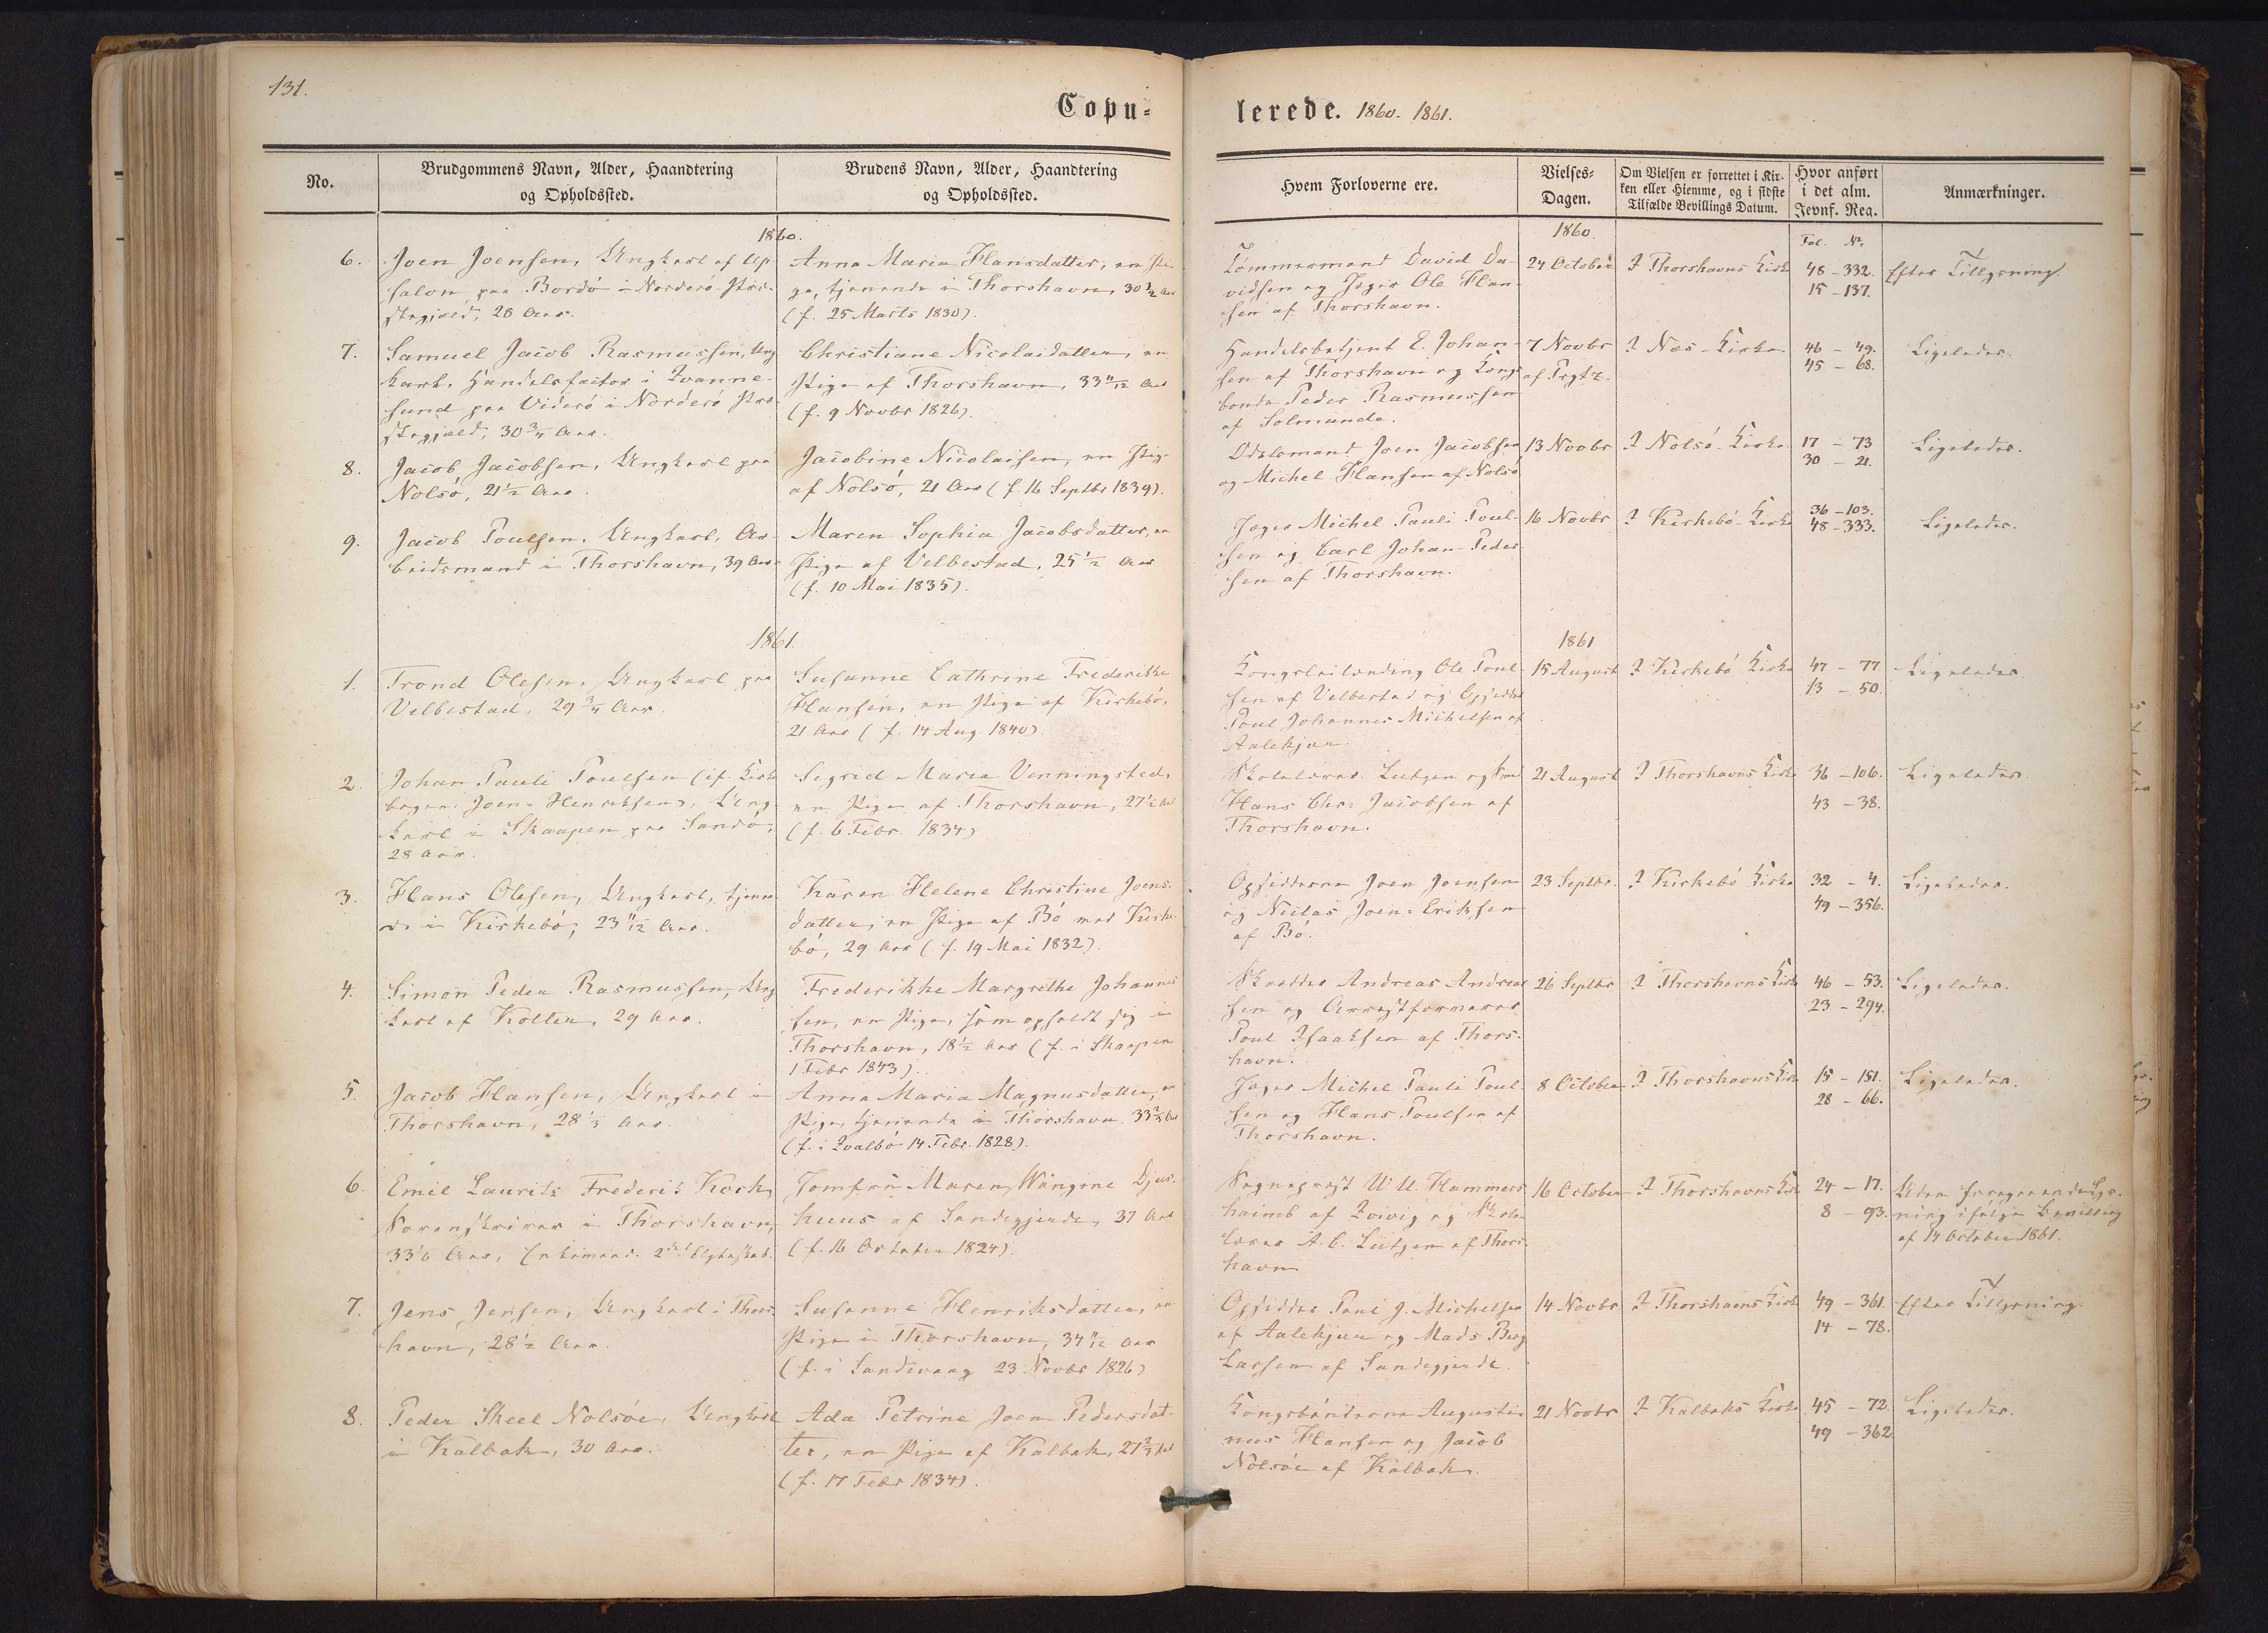 131.
Copu-
lerede. 1860-1861.
No.
Brudgommens Navn, Alder, Haandtering
og Opholdssted.
Brudens Navn, Alder, Haandtering
og Opholdssted.
Hvem Forloverne ere.
Vielses-
Dagen.
Om Vielsen er forrettet i Kir-
ken eller Hiemme, og i sidste
Tilfælde Bevillings Datum.
Hvor anført
i det alm.
Jevnf. Reg.
Anmærkninger.
1860.
1860.
Fol. Nr.
6.
Joen Joensen, Ungkarl af Up-
salon paa Bordö i Norderö Præ-
stegjæld, 28 Aar.
Anna Maria Hansdatter, en Pi-
ge, tjenende i Thorshavn, 30 1/2 Aar
(f. 25 Marts 1830).
Tömmermand David Da-
vidsen og Jæger Ole Han-
sen af Thorshavn.
24 October
I Thorshavns Kirke
48-332.
15-137.
Efter Tillysning.
7.
Samuel Jacob Rasmussen, Ung
karl, Handelsfactor i Qvanne-
sund paa Viderö i Norderö Præ-
stegjæld, 30 3/4 Aar.
Christiane Nicolaidatter, en
Pige af Thorshavn, 33 11/12 Aar
(f. 9 Novbr 1826).
Handelsbetjent E. Johan-
sen af Thorshavn og Kongs
bonde Peder Rasmussen
af Solmunde.
7 Novbr
I Næs-Kirke
46 - 49.
45 - 68.
Ligeledes.
8.
Jacob Jacobsen, Ungkarl paa
Nolsö, 21 1/2 Aar.
Jacobine Nicolaisen, en Pige
af Nolsö, 21 Aar (f. 16 Septbr 1839).
Odelsmand Joen Jacobsen
og Michel Hansen af Nolsö
13 Novbr
I Nolsö-Kirke
17 - 73
30 - 21.
Ligeledes.
9.
Jacob Poulsen, Ungkarl, Ar-
beidsmand i Thorshavn, 39 Aar
Maren Sophia Jacobsdatter, en
Pige af Velbestad, 25 1/2 Aar
(f. 10 Mai 1835).
Jæger Michel Pauli Poul-
sen og Carl Johan Peder
sen af Thorshavn.
16 Novbr
I Kirkebö-Kirke
36-103.
48-333.
Ligeledes.
1861.
1861
1.
Trond Olesen, Ungkarl paa
Velbestad, 29 3/4 Aar.
Susanne Cathrine Frederikke
Hansen, en Pige af Kirkebö,
21 Aar (f. 14 Aug. 1840).
Ole Poul-
sen af Velbestad og
Poul Johannes Michelsen af
Aalekjær.
15 August
I Kirkebö Kirke
47 - 77.
13 - 50.
Ligeledes
2.
Johan Pauli Poulsen (if. Kirke
bogen: Joen Henriksen), Ung-
karl i Skaapen paa Sandö,
28 Aar.
Sigrid Maria Venningsted,
en Pige af Thorshavn, 27 1/2 Aar
(f. 6 Febr. 1834)
Skolelærer Lützen og
Hans Chr. Jacobsen af
Thorshavn.
21 August
I Thorshavns Kirke
36 - 106.
43 - 38.
Ligeledes.
3.
Hans Olesen, Ungkarl, tjenen
de i Kirkebö, 23 11/12 Aar.
Karen Helene Christine Joens-
datter, en Pige af Bö ved Kirke
bö, 29 Aar (f. 19 Mai 1832).
Opsidderne Joen Joensen
og Niclas Joen-Eriksen
af Bö.
23 Septbr.
I Kirkebö Kirke
32 - 4.
49 - 356.
Ligeledes.
4.
Simon Peder Rasmussen, Ung
karl af Kolter, 29 Aar.
Frederikke Margrethe Johannes
sen, en Pige, som opholdt sig i
Thorshavn, 18 1/2 Aar (f. i Skaapen
1 Febr 1843).
Skrædder Andreas Andreas
sen og Arrestforvarer
Poul Isaaksen af Thors-
havn.
26 Septbr
I Thorshavns Kirke
46 - 53.
23 - 294.
Ligeledes.
5.
Jacob Hansen, Ungkarl i
Thorshavn, 28 1/3 Aar.
Anna Maria Magnusdatter, en
Pige, tjenende i Thorshavn, 33 2/3 Aar
(f. i Qvalbö 14 Febr. 1828).
Jæger Michel Pauli Poul
sen og Hans Poulsen af
Thorshavn.
8 October
I Thorshavns Kirke
15 - 151.
28 - 66.
Ligeledes.
6.
Emil Laurits Frederik Kock,
Sorenskriver i Thorshavn,
33 1/6 Aar, Enkemand. 2det Ægteskab.
Jomfru Maren Wangine Djur-
huus af Sandegjerde, 37 Aar
(f. 16 October 1824).
Sognepræst U. U. Hammers
haimb af Qvivig og Skole-
lærer A. C. Lützen af Thors-
havn
16 October
I Thorshavns Kirke
24 - 17.
8 - 93.
Uden foregaaende Lys-
ning ifølge Bevilling
af 14 October 1861.
7.
Jens Jensen, Ungkarl i Thors-
havn, 28 1/2 Aar.
Susanne Henriksdatter, en
Pige i Thorshavn, 34 11/12 Aar
(f. i Sandevaag 23 Novbr 1826)
Opsidder Poul J. Michelsen
af Aalekjær og Mads Berg
Larsen af Sandegjerde.
14 Novbr
I Thorshavns Kirke
49 - 361.
14 - 78.
Efter Tillysning.
8.
Peder Skeel Nolsöe, Ungkarl
i Kalbak, 30 Aar.
Ada Petrine Joen Pedersdat-
ter, en Pige af Kalbak, 27 2/3 Aar
(f. 17 Febr 1834).
Kongsbönderne Augusti-
nus Hansen og Jacob
Nolsöe af Kalbak.
21 Novbr
I Kalbaks Kirke
45 - 72.
49 - 362.
Ligeledes.